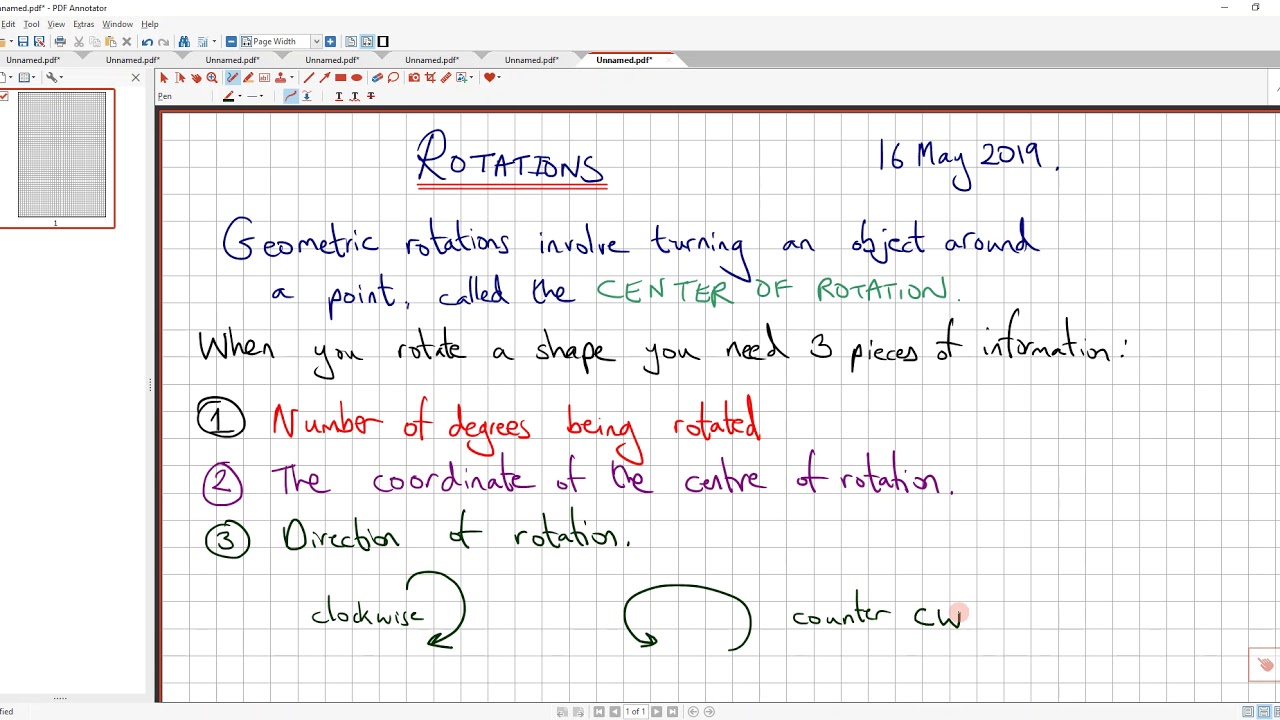 nnamed.pdf* - PDF Annotator
Edit Tool View Extras Window Help
Page Width
Unnamed.pdf* Unnamed.pdf* Unnamed.pdf* Unnamed.pdf* Unnamed.pdf* Unnamed.pdf* Unnamed.pdf*
Pen
1
ROTATIONS 16 May 2019.
Geometric rotations involve turning an object around
a point, called the CENTER OF ROTATION.
When you rotate a shape you need 3 pieces of information:
1 Number of degrees being rotated
2 The coordinate of the centre of rotation.
3 Direction of rotation.
clockwise counter CW
fied 1 of 1